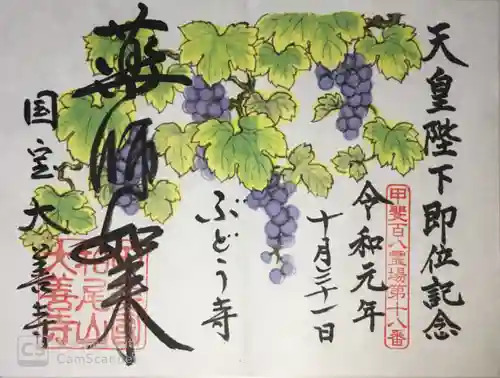 天皇陛下即位記念
甲斐百八霊場第十八番
令和元年
十月三十一日
ぶどう寺
薬師如来
国宝 大善寺
柏尾山
大善寺
CS CamScanner